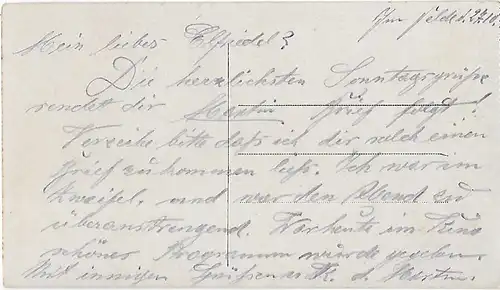 Im Felde d. 27.10.
Mein liebes Elfriedel?
Die herzlichsten Sonntagsgrüße
sendet dir Martin. Brief folgt!
Verzeihe bitte daß ich dir solch einen
Brief zukommen ließ. Ich war im
Zweifel, und war den Abend zu
überanstrengend. War heute im Kino
schönes Programm wurde gegeben.
Mit innigen Grüßen u. K. d. Martin.